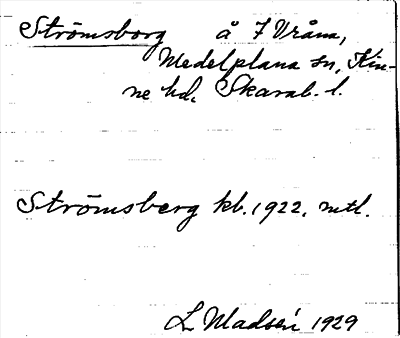 Strömsborg å 7 Vråna,
Medelplana sn, Kin-
ne hd, Skarab. l.
Strömsberg kb. 1922, mtl.
L Madsén 1929